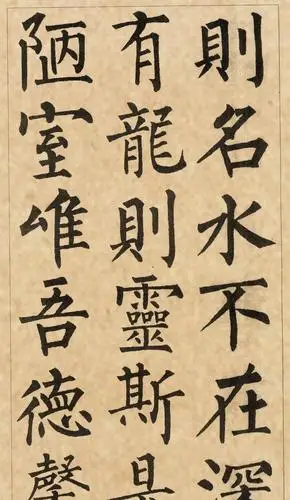 則名水不在深
有龍則靈斯是
陋室唯吾德馨